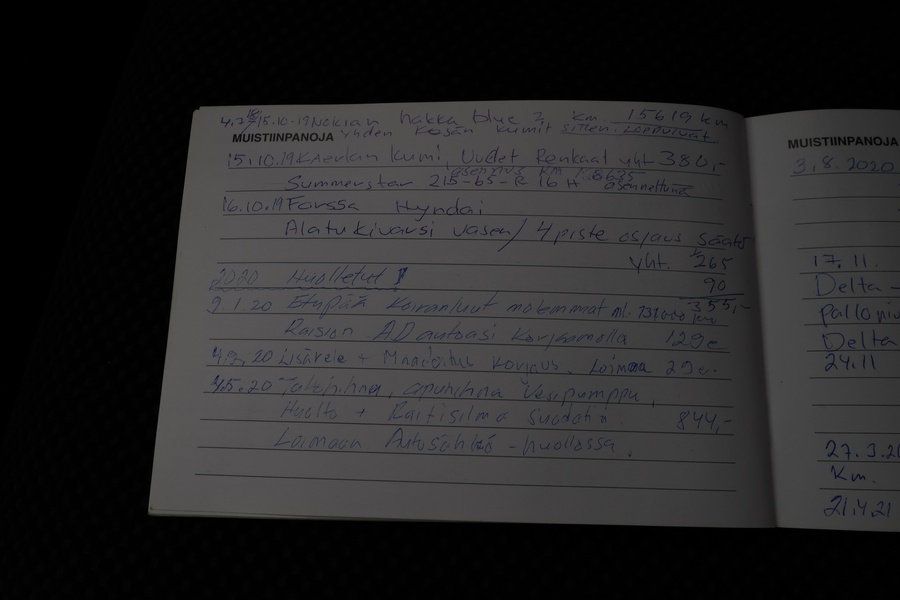 15.10-19 Nokian hakka blue 2 km 15619 km
MUISTIINPANOJA yhden kesän kumit sitten loppuivat.
15.10.19 kumi, Uudet Renkaat yht 380,-
asennus km
Summerstar 215-65-R 16 H asennettuna
16.10.19 Forssa Hyndai
Alatukivarsi vasen/ 4 piste säätö
yht. 265
90
355,-
2020 Huolletut
9.1.20 Etupää Koiranluut molemmat ml.
Raision AD autoasi Korjaamolla 129e
20 Lisärele + Maadoitus korjaus. Loimaa 29e.
5.20 Jakohihna, apuhihna Vesipumppu,
Huolto + Raitisilma suodatin 844,-
Loimaan Autosähkö-huollossa.
MUISTIINPANOJA
3.8.2020
17.11.
Delta-
Delta
24.11
27.3.21
Km.
21.4.21